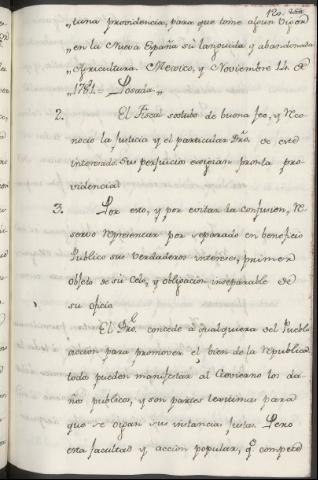 „tuna providencia, para que tome algun vigor
„en la Nueva España su languida y abandonada
„Agricultura. Mexico, y Noviembre 14 de
„1781.= Posada.„
2. El Fiscal sostubo de buena feo, y Reco
nocio la Justicia y el particular Dro. de este
interesado. Sus perjuicios exigian pronta pro-
videncia.
3. Por esto, y por evitar la confusion, Re
servo representar por separado en beneficio
Publico sus verdaderos intereses, primer
objeto de su celo, y obligacion inseparable de
su oficio.
El Dro. concede à cualquiera del Pueblo
accion para promover el bien de la Republica
todo pueden manifestar al Govierno los da-
ños publicos, y son partes lexitimas para
que se oigan sus instancias justas. Pero
esta facultad y accion popular, q.e compete